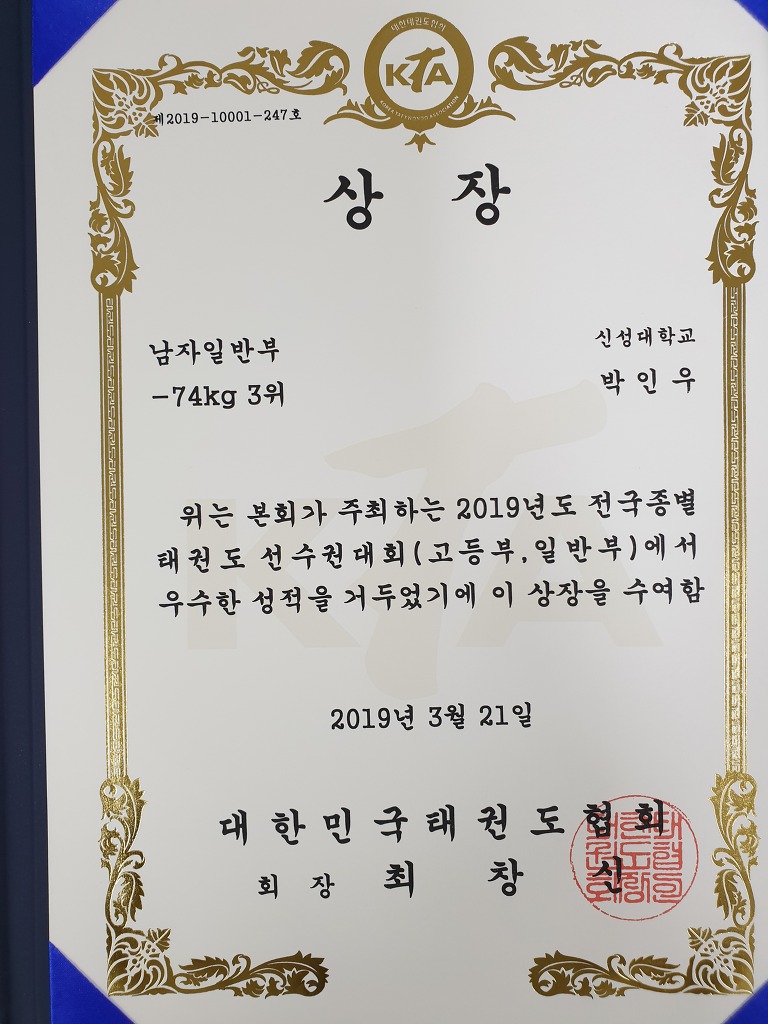 대한태권도협회
KTA
KOREA TAEKWONDO ASSOCIATION
제2019-10001-247호
상 장
남자일반부
-74kg 3위
신성대학교
박 인 우
KTA
위는 본회가 주최하는 2019년도 전국종별
태권도 선수권대회(고등부,일반부)에서
우수한 성적을 거두었기에 이 상장을 수여함
2019년 3월 21일
대한민국태권도협회
회 장 최 창 신